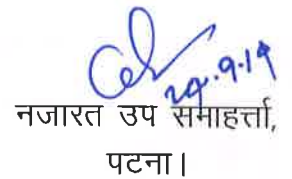 29.9.19
नजारत उप समाहर्त्ता,
पटना।